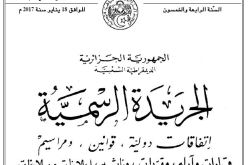 السنة الرابعة والخمسون
الموافق 18 يناير سنة 2017 م
الجمهورية الجزائرية
الديمقراطية الشعبية
الجريدة الرسمية
إتفاقات دولية، قوانين، ومراسيم